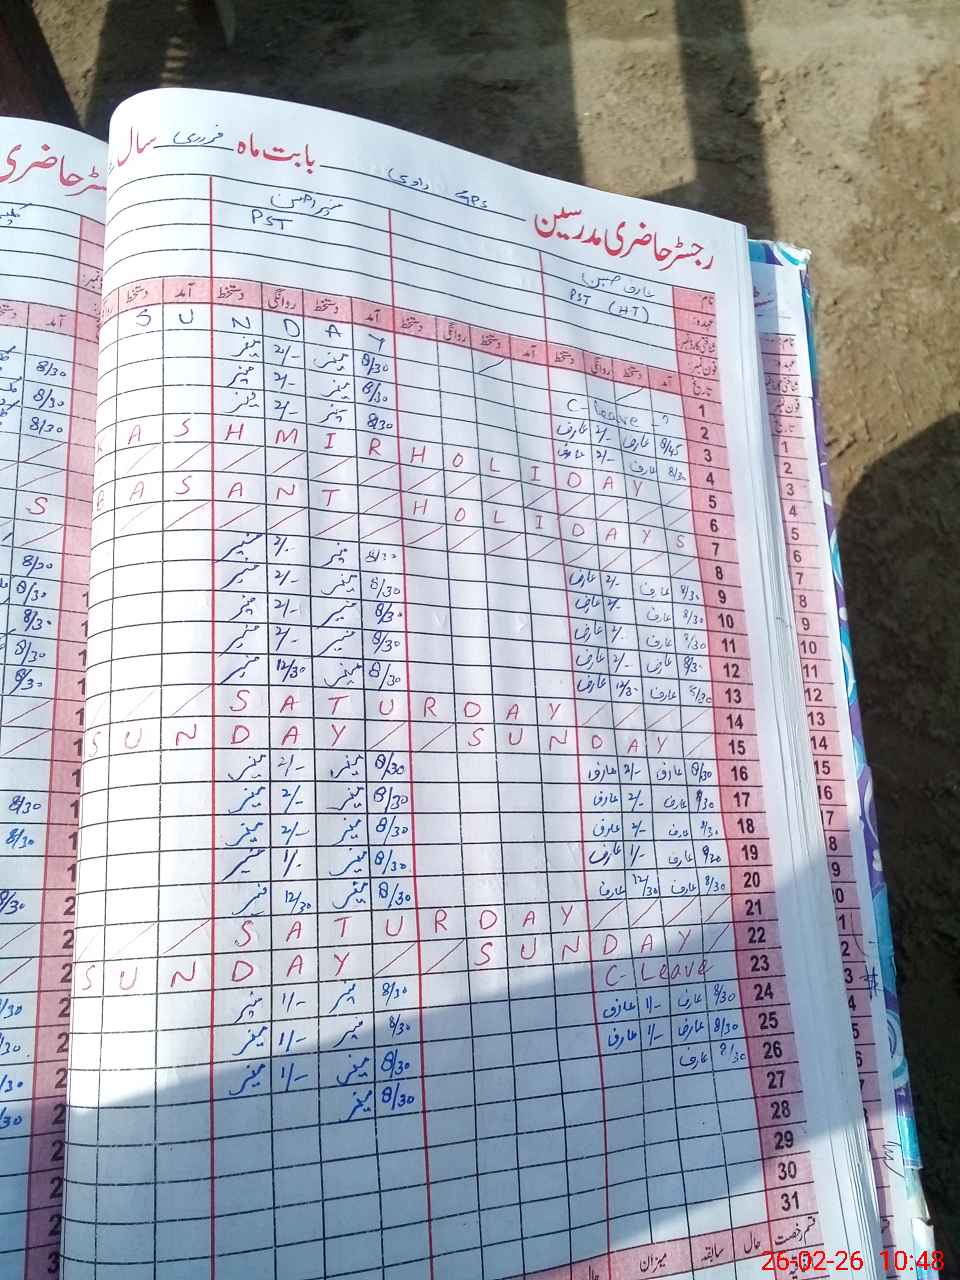 رجسٹر حاضری مدرسین GPS راوی بابت ماہ فروری سال
نام عارف حسین منیر احمد
عہدہ PST (HT) PST
شناختی کارڈ نمبر
فون نمبر
تاریخ آمد دستخط روانگی دستخط آمد دستخط روانگی دستخط آمد دستخط روانگی دستخط آمد دستخط
1 SUNDAY
2 C-leave 8/30 منیر 2/- منیر
3 8/45 عارف 2/- عارف 8/30 منیر 2/- منیر
4 8/30 عارف 2/- عارف 8/30 منیر 2/- منیر
5 KASHMIR HOLIDAY
6
7 BASANT HOLIDAYS
8
9 8/30 عارف 2/- عارف 8/30 منیر 2/- منیر
10 8/30 عارف 2/- عارف 8/30 منیر 2/- منیر
11 8/30 عارف 2/- عارف 8/30 منیر 2/- منیر
12 8/30 عارف 2/- عارف 8/30 منیر 2/- منیر
13 8/30 عارف 12/30 عارف 8/30 منیر 12/30 منیر
14 SATURDAY
15 SUNDAY SUNDAY
16 8/30 عارف 2/- عارف 8/30 منیر 2/- منیر
17 8/30 عارف 2/- عارف 8/30 منیر 2/- منیر
18 8/30 عارف 2/- عارف 8/30 منیر 2/- منیر
19 8/30 عارف 1/- عارف 8/30 منیر 1/- منیر
20 8/30 عارف 12/30 عارف 8/30 منیر 12/30 منیر
21 SATURDAY
22 SUNDAY SUNDAY
23 C-Leave 8/30 منیر 1/- منیر
24 8/30 عارف 1/- عارف 8/30 منیر 1/- منیر
25 8/30 عارف 1/- عارف 8/30 منیر 1/- منیر
26 8/30 عارف 8/30 منیر
27
28
29
30
31
قسم رخصت حال سابقہ میزان حال
26-02-26 10:48